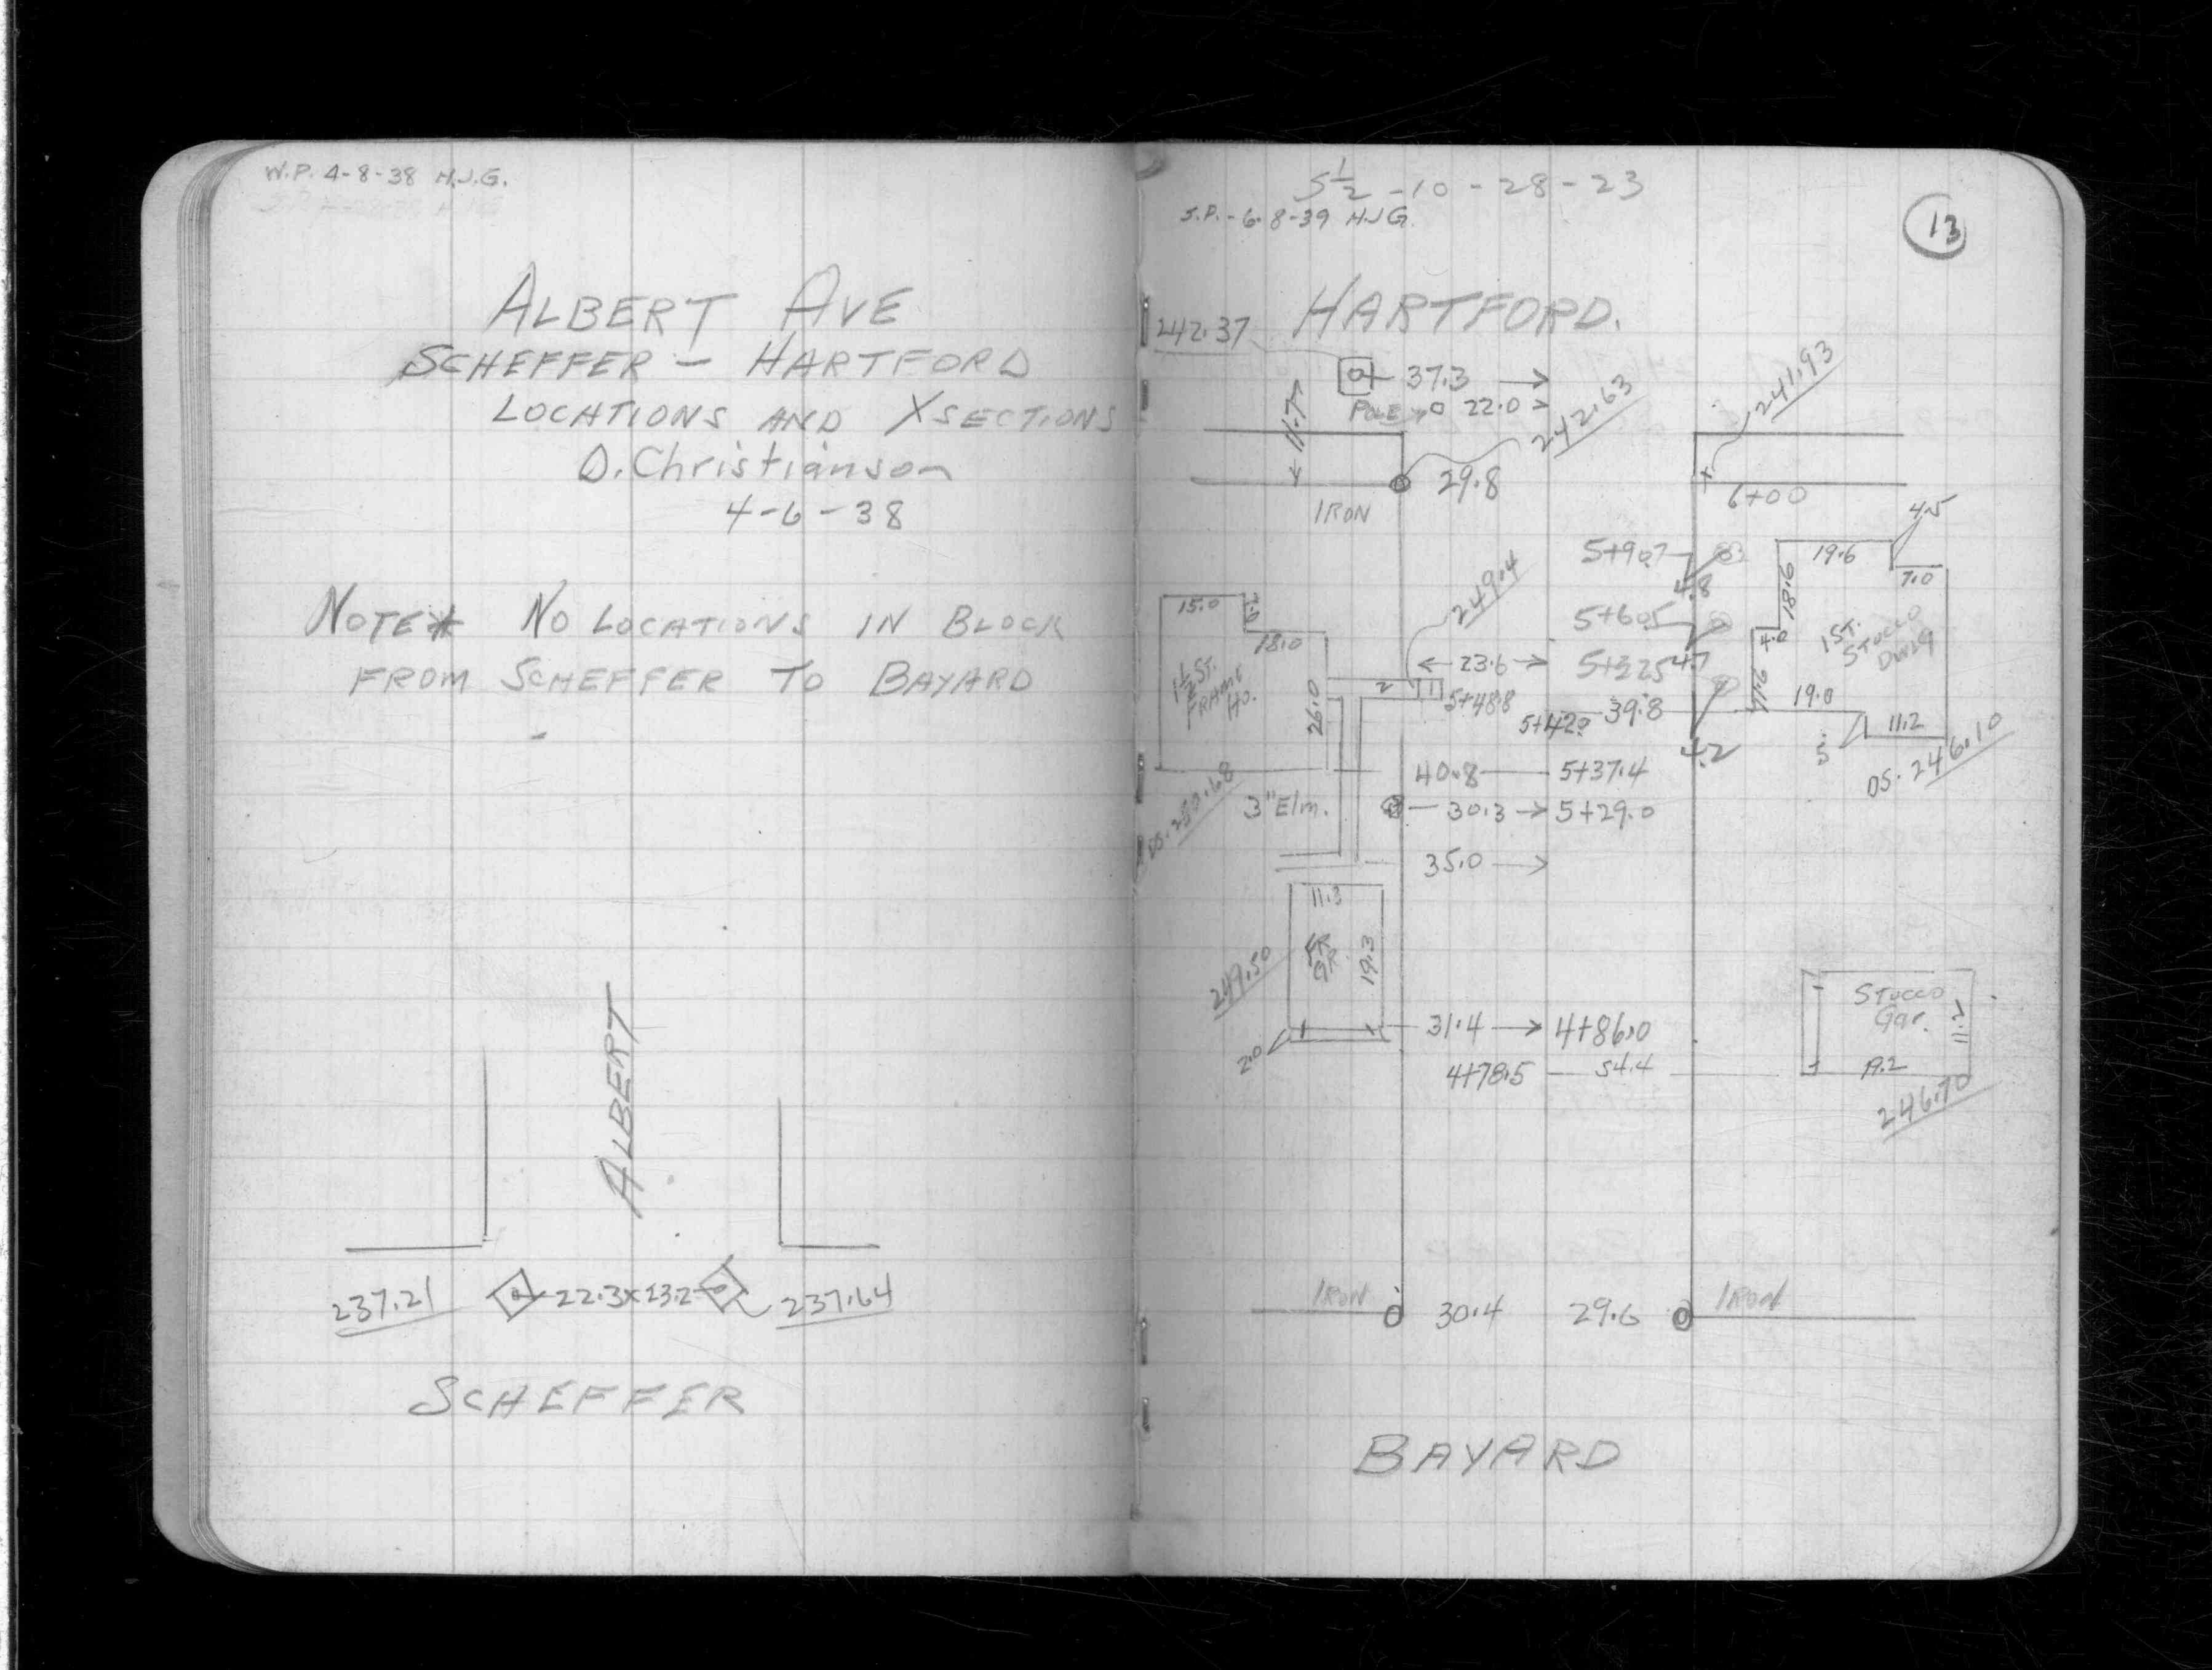 W.P. 4-8-38 H.J.G.
ALBERT AVE
SCHEFFER - HARTFORD
LOCATIONS AND XSECTIONS
D. Christianson
4-6-38
NOTE* NO LOCATIONS IN BLOCK
FROM SCHEFFER TO BAYARD
ALBERT
237.21
22.3x13.2
237.64
SCHEFFER
5½ -10 - 28 - 23
S.P. - 6-8-39 H.J.G.
13
HARTFORD.
242.37
37.3
POLE 22.0
11.7
242.63
241.93
29.8
IRON
6+00
4.5
5+90.7
19.6
4.8
18.6
7.0
249.4
15.0
18.0
5+60.5
4.0
1 ST.
STUCCO
Dwlg
1½ ST.
FRAME
HO.
26.0
2
23.6
5+32.5
4.7
5+48.8
39.8
19.0
11.2
4.2
5
DS. 246.10
40.8 5+37.4
3" Elm. 30.3 5+29.0
35.0
11.3
FR
GR.
19.3
249.50
2.0
31.4 4+86.0
4+78.5 54.4
STUCCO
Gar.
19.2
246.70
IRON
30.4 29.6
IRON
BAYARD